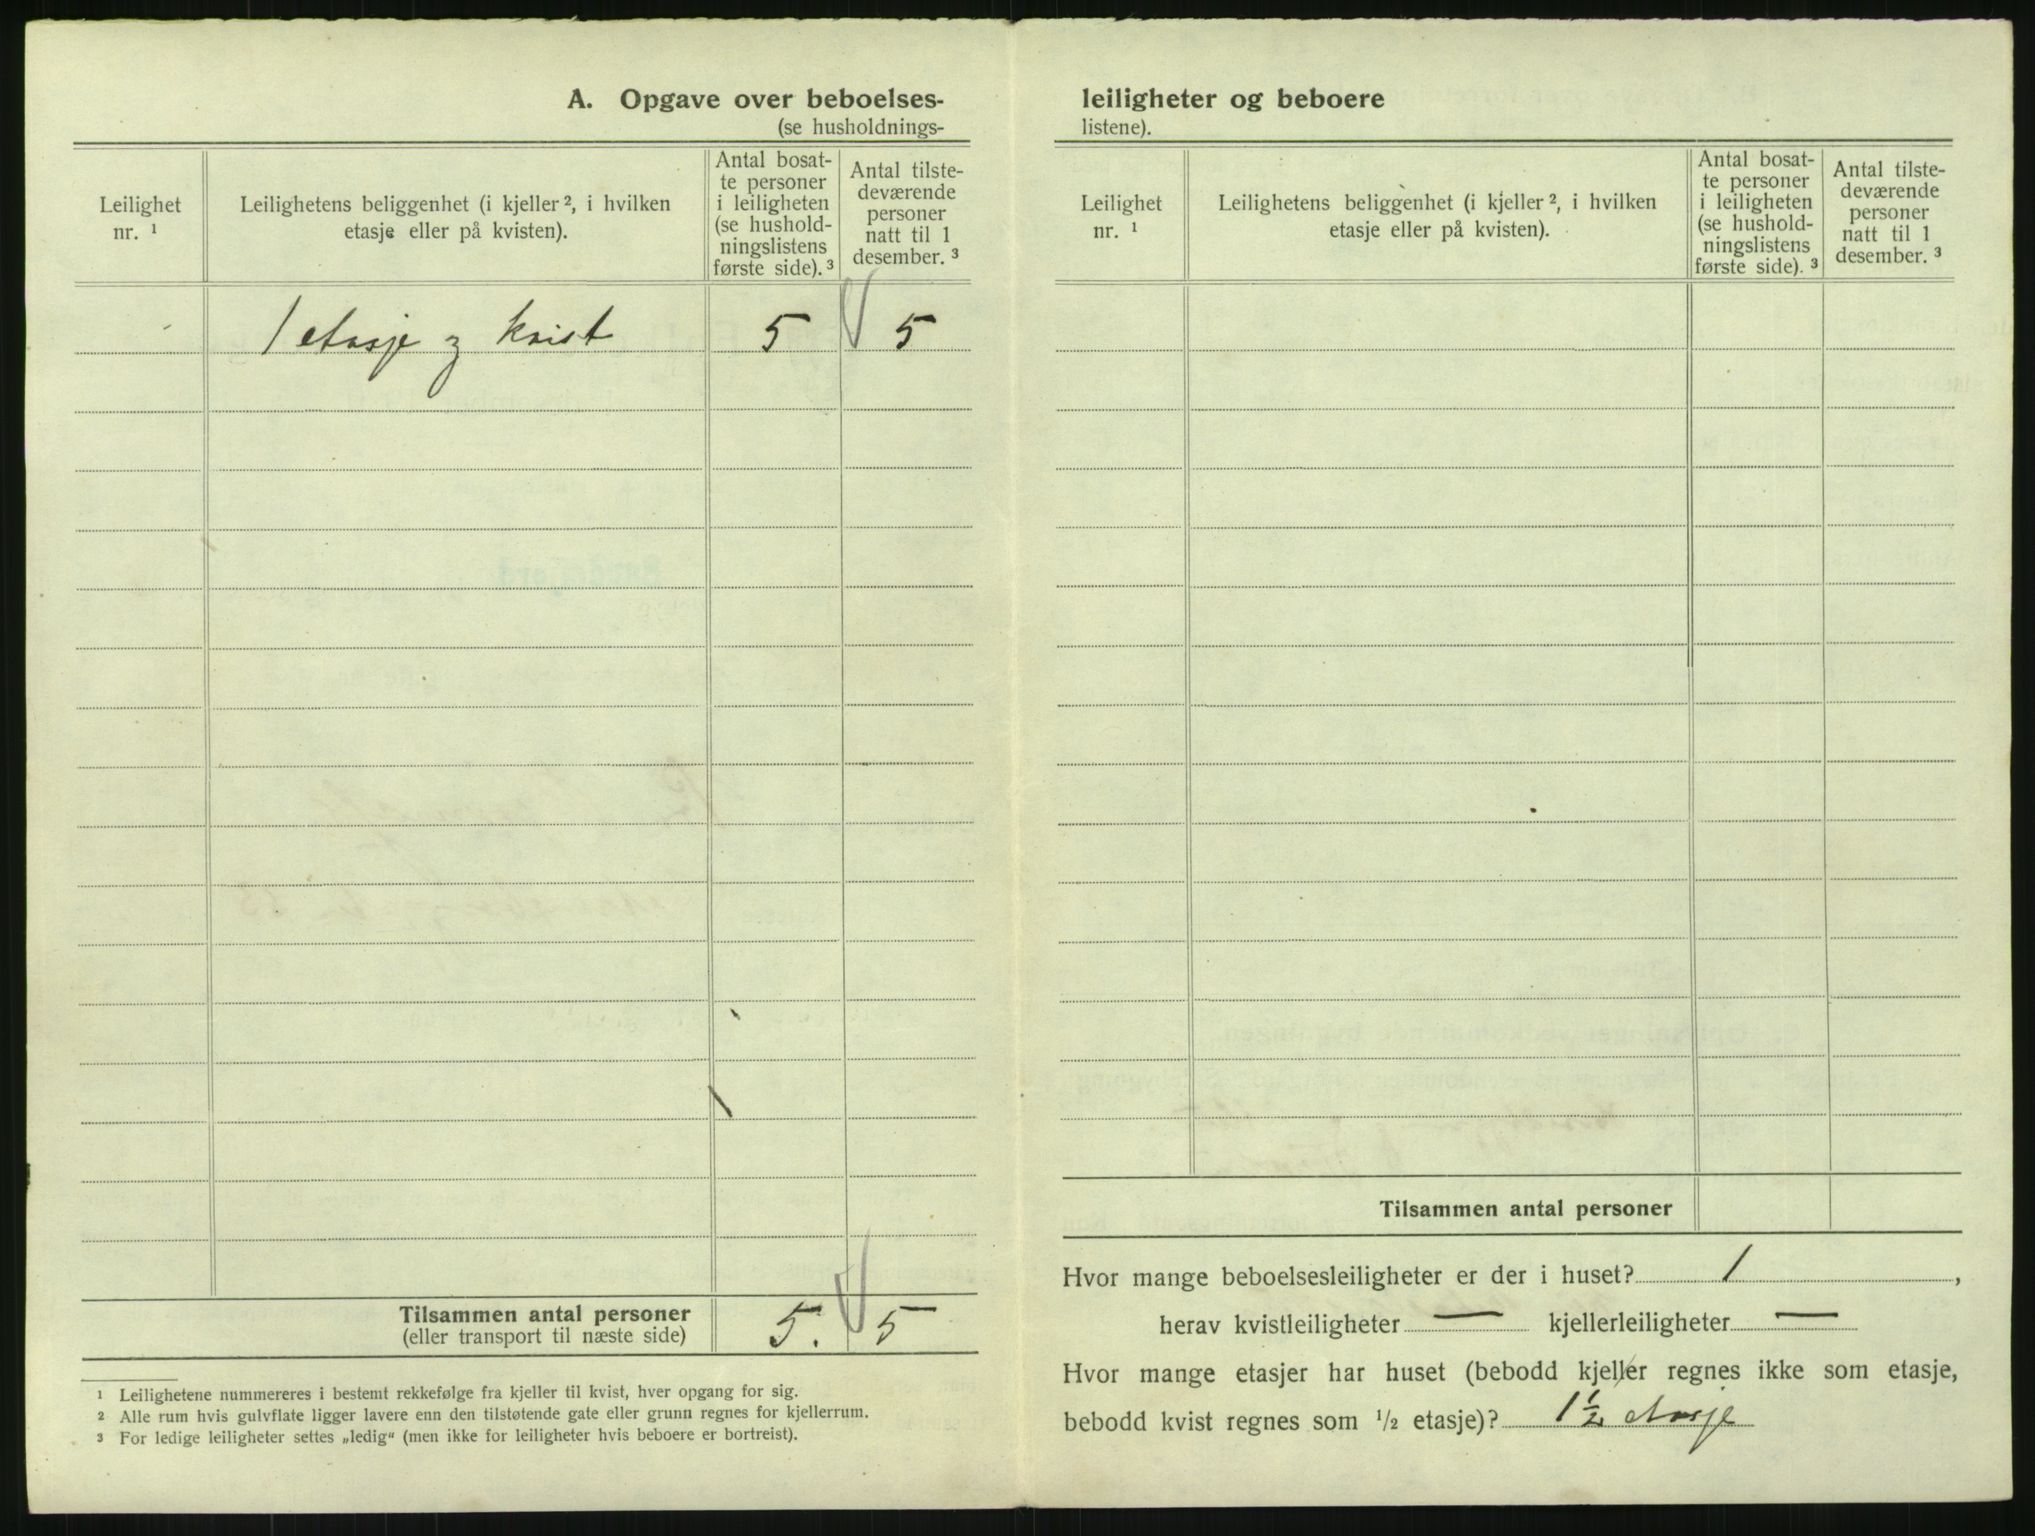 A. Opgave over beboelses-
(se husholdnings-
Leilighet
nr. ¹
Leilighetens beliggenhet (i kjeller ², i hvilken
etasje eller på kvisten).
Antal bosat-
te personer
i leiligheten
(se hushold-
ningslistens
første side). ³
Antal tilste-
deværende
personer
natt til 1
desember. ³
1 etasje og kvist 5 5
Tilsammen antal personer 5. 5
(eller transport til næste side)
¹ Leilighetene nummereres i bestemt rekkefølge fra kjeller til kvist, hver opgang for sig.
² Alle rum hvis gulvflate ligger lavere enn den tilstøtende gate eller grunn regnes for kjellerrum.
³ For ledige leiligheter settes „ledig“ (men ikke for leiligheter hvis beboere er bortreist).
leiligheter og beboere
listene).
Leilighet
nr. ¹
Leilighetens beliggenhet (i kjeller ², i hvilken
etasje eller på kvisten).
Antal bosat-
te personer
i leiligheten
(se hushold-
ningslistens
første side). ³
Antal tilste-
deværende
personer
natt til 1
desember. ³
Tilsammen antal personer
Hvor mange beboelsesleiligheter er der i huset? 1 ,
herav kvistleiligheter — kjellerleiligheter —
Hvor mange etasjer har huset (bebodd kjeller regnes ikke som etasje,
bebodd kvist regnes som ½ etasje)? 1½ etasje